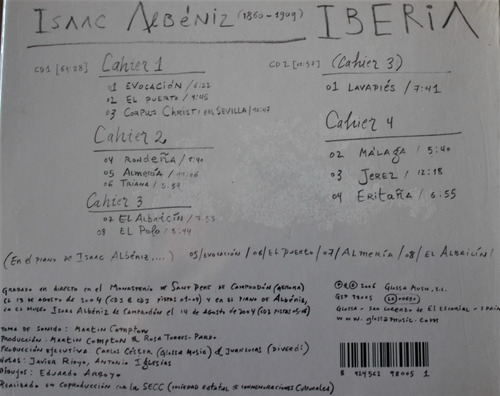 ISAAC ALBÉNIZ (1860-1909) IBERIA
CD1 [64:28] Cahier 1
01 EVOCACIÓN / 6:22
02 EL PUERTO / 4:45
03 CORPUS CHRISTI EN SEVILLA
Cahier 2
04 RONDEÑA / 7:40
05 ALMERÍA / 11:06
06 TRIANA / 5:57
Cahier 3
07 EL ALBAICÍN / 7:53
08 EL POLO / 8:44
CD2 (Cahier 3)
01 LAVAPIÉS / 7:41
Cahier 4
02 MÁLAGA / 5:40
03 JEREZ / 12:18
04 ERITAÑA / 6:55
(En el piano de ISAAC ALBÉNIZ....) 05/EVOCACIÓN / 06/EL PUERTO / 07/ALMERÍA / 08/EL ALBAICÍN/
GRABADO EN DIRECTO EN EL MONASTERIO DE SANT PERE DE CAMPRODÓN (GERONA)
EL 13 DE AGOSTO DE 2004 (CD1 & CD2 PISTAS 01-04) Y EN EL PIANO DE ALBÉNIZ,
EN EL MUSEO ISAAC ALBÉNIZ DE CAMPRODÓN EL 14 DE AGOSTO DE 2004 (CD2 PISTAS 05-08)
TOMA DE SONIDO: MARTIN COMPTON
PRODUCCIÓN: MARTIN COMPTON & ROSA TORRES-PARDO
PRODUCCIÓN EJECUTIVA CARLOS CÉSTER (GLOSSA MUSIC) & JUAN LUCAS (DIVERDI)
NOTAS: JAVIER RIOYO, ANTONIO IGLESIAS
DIBUJOS: EDUARDO ARROYO
REALIZADO EN COPRODUCCIÓN CON LA SECC (SOCIEDAD ESTATAL DE CONMEMORACIONES CULTURALES)
℗ & © 2006 GLOSSA MUSIC, S.L.
GSP 98005
GLOSSA - SAN LORENZO DE EL ESCORIAL - SPAIN
www.glossamusic.com
8 424562 98005 1